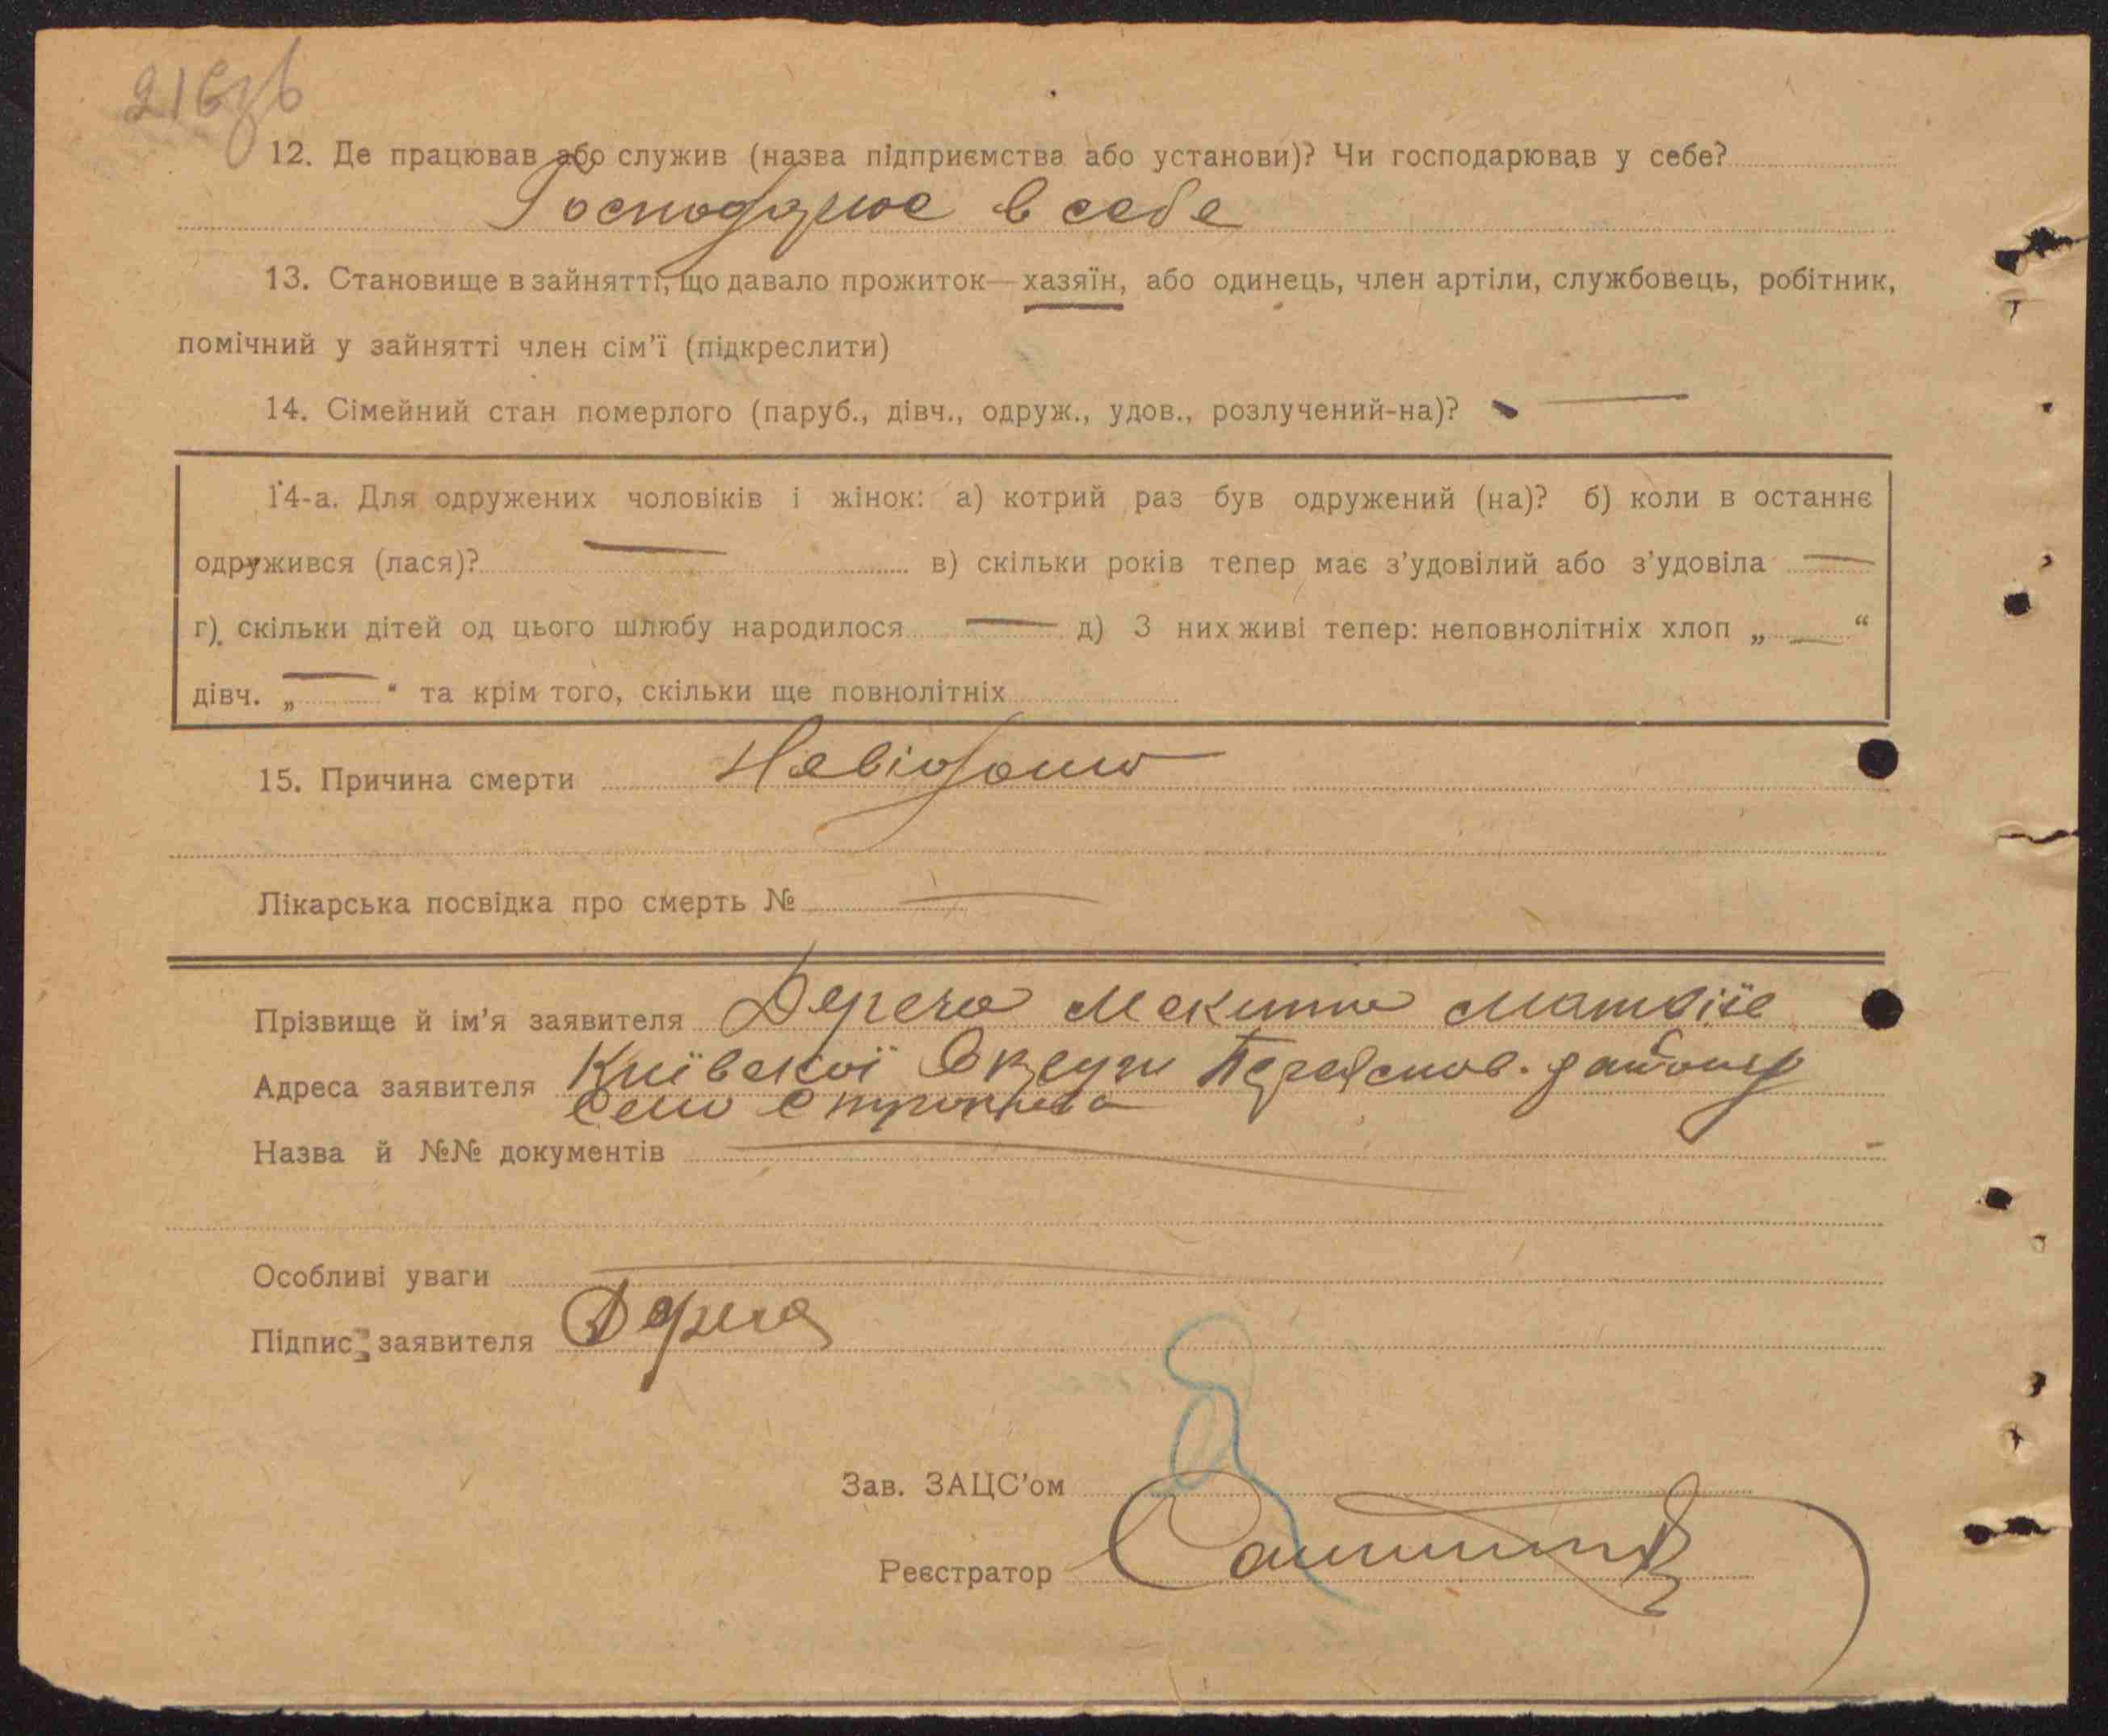 216зв
12. Де працював або служив (назва підприємства або установи)? Чи господарював у себе?
Господарює в себе
13. Становище в зайнятті, що давало прожиток—хазяїн, або одинець, член артіли, службовець, робітник,
помічний у зайнятті член сім'ї (підкреслити)
14. Сімейний стан померлого (паруб., дівч., одруж., удов., розлучений-на)? —
14-а. Для одружених чоловіків і жінок: а) котрий раз був одружений (на)? б) коли в останнє
одружився (лася)? — в) скільки років тепер має з'удовілий або з'удовіла —
г) скільки дітей од цього шлюбу народилося — д) З них живі тепер: неповнолітніх хлоп „ — “
дівч. „ — “ та крім того, скільки ще повнолітніх
15. Причина смерти Невідомо
Лікарська посвідка про смерть № —
Прізвище й ім'я заявителя Матвійє
Адреса заявителя Київскої Округи району
Село
Назва й №№ документів —
Особливі уваги —
Підпис заявителя
Зав. ЗАЦС'ом
Реєстратор